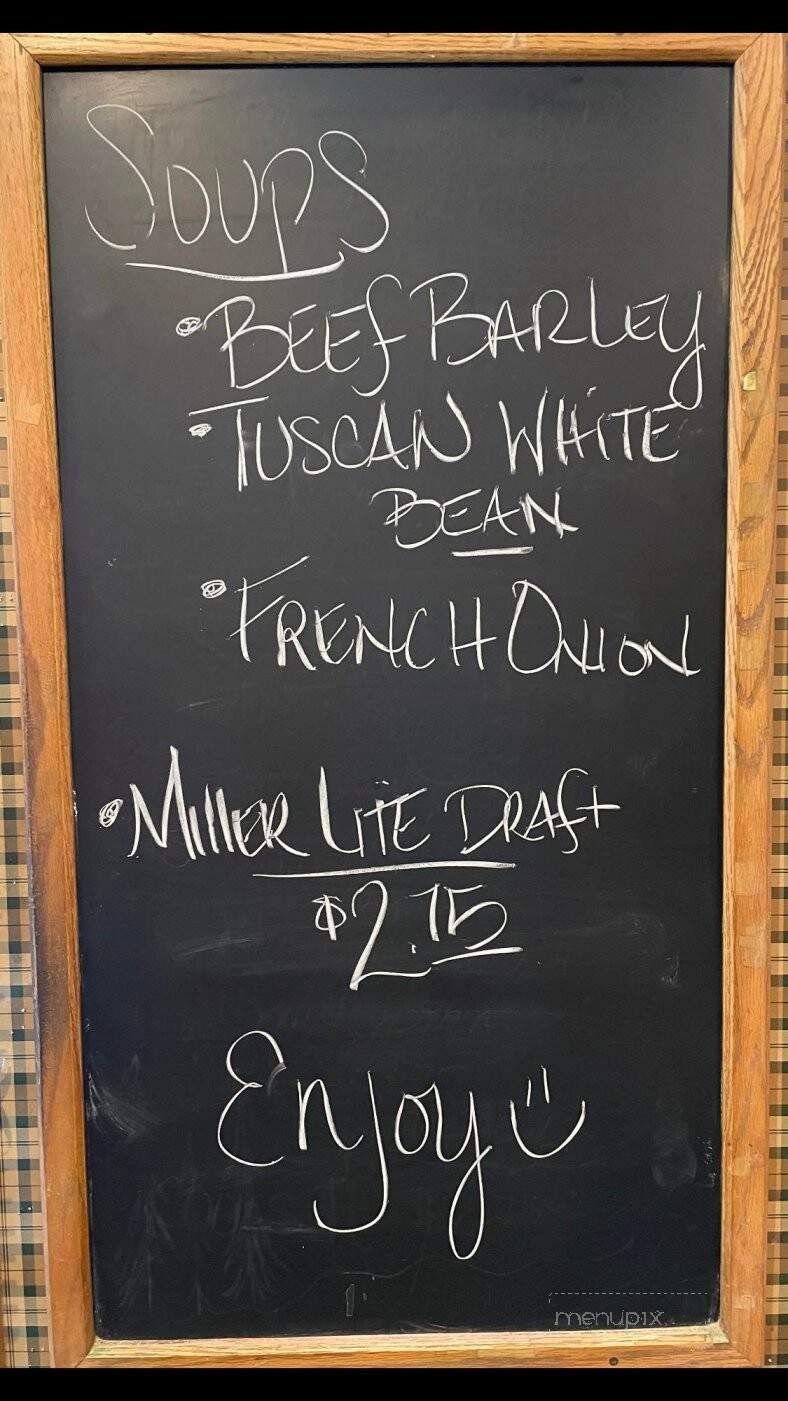 Soups
• Beef Barley
• Tuscan White
Bean
• French Onion
• Miller Lite Draft
$2.75
Enjoy
menupix